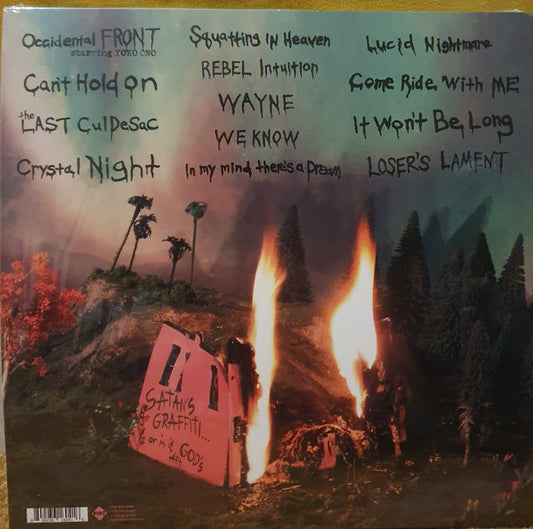 Occidental FRONT
starring YOKO ONO
Can't Hold on
the LAST CulDeSac
Crystal Night
Squatting in Heaven
REBEL Intuition
WAYNE
WE KNOW
In my mind there's a Dream
Lucid Nightmare
Come Ride With ME
It Won't Be Long
LOSER'S LAMENT
SATAN'S
GRAFFITI...
or is it GOD'S
ART